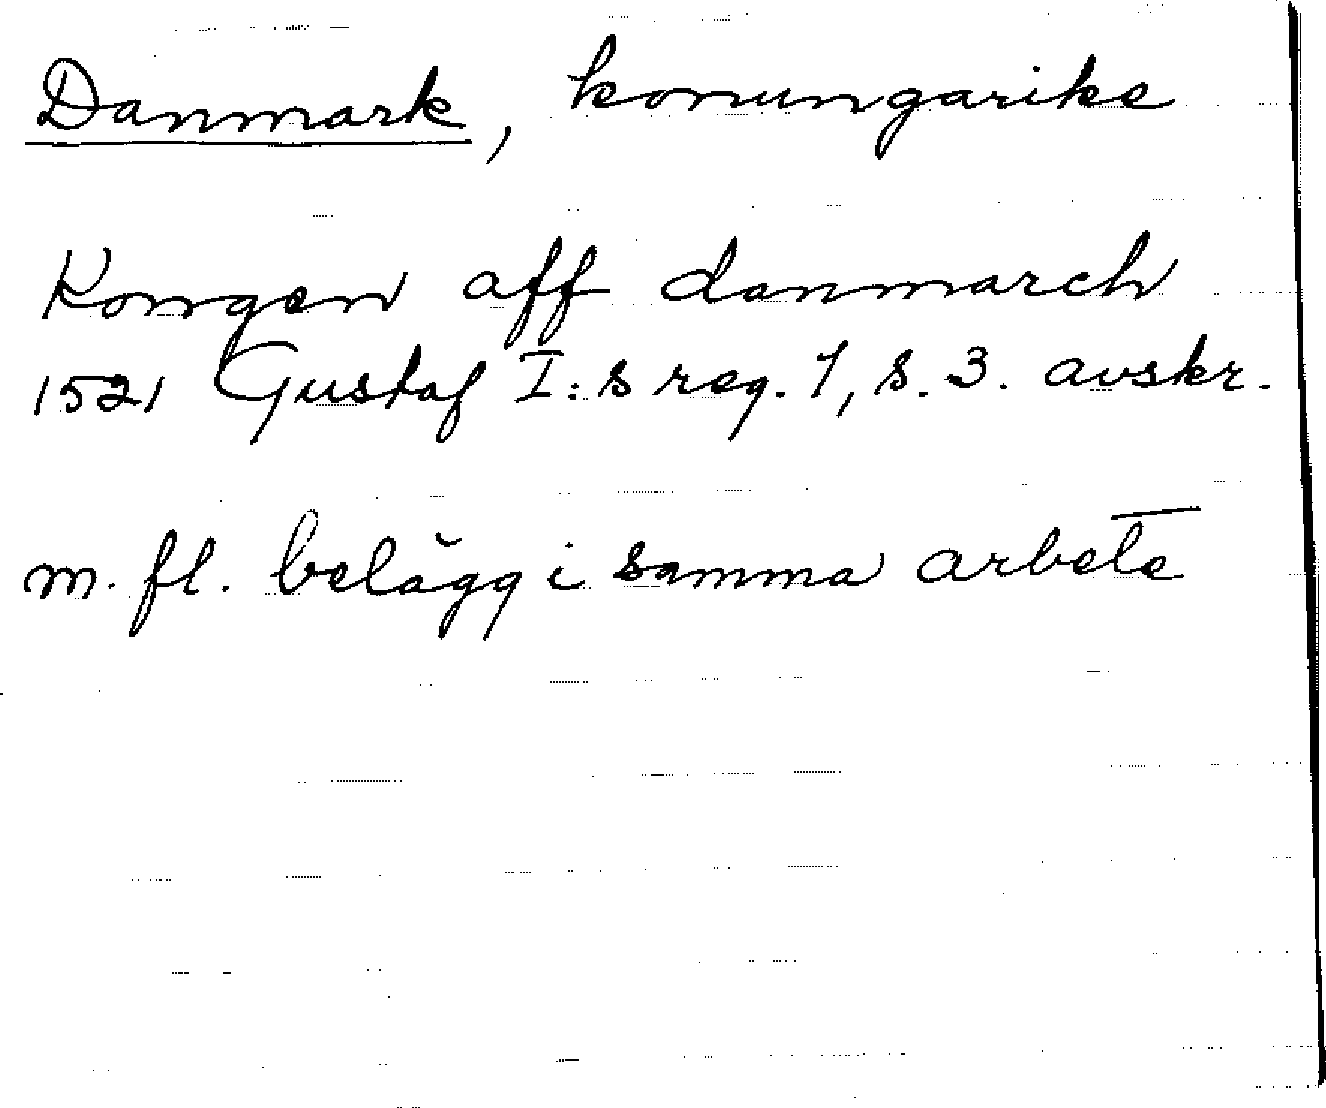 Danmark, konungarike
Kongen aff danmarch
1521 Gustaf I:s reg. 1, s. 3. avskr.
m. fl. belägg i samma arbete